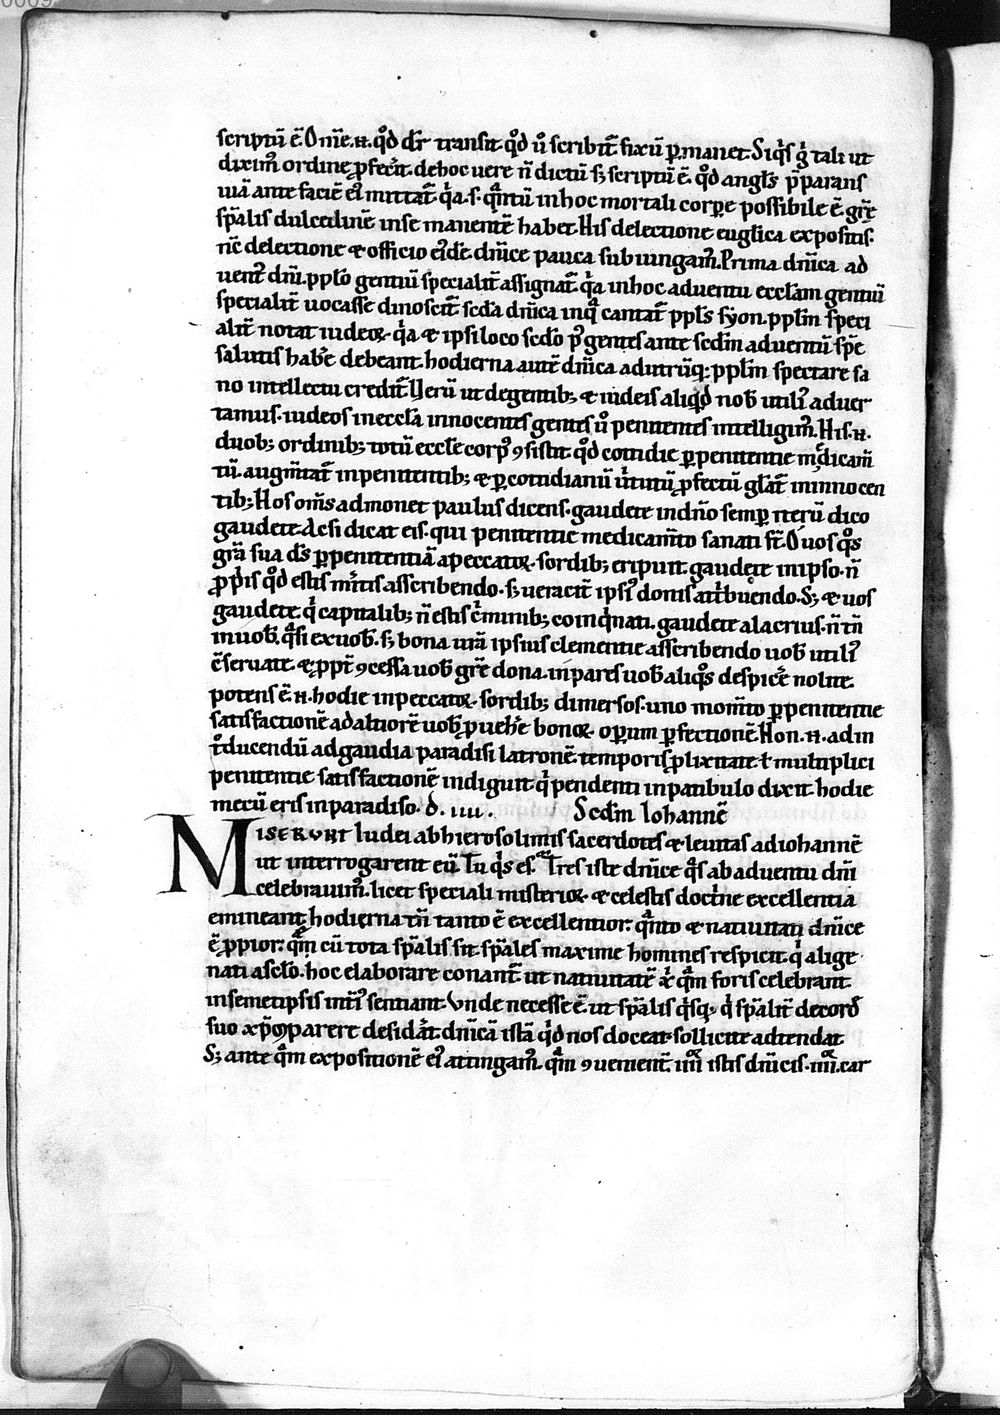 scriptū ē. Om̄e .n. qd̊ dr̄ transit. qd̊ ů scribit̄ fixū ꝑmanet. Siq̇s g̊ tali ut
dixim᷒ ordine ꝓfecit. de hoc uere n̄ dictū sꝫ scriptū ē. qd̊ angl̄s p̄parans
uiā ante faciē ei᷒ mittat᷑. q̇a .s. qͣntū in hoc mortali corꝑe possibile ē gr̄e
sp̄alis dulcedinē in se manentē habet. His delectione euḡlica expositis.
nc̄ delectione ⁊ officio ei᷒de dn̄ice pauca subiungam᷒. Prima dn̄ica ad
uent᷒ dn̄i. ppl̄o gentiū specialit̄ assignat᷑. q̇a in hoc aduentu eccl̄am gentiū
specialit̄ uocasse dinoscit᷑. sc̄da dn̄ica in q̄ cantat᷑ ppl̄s syon. ppl̄m speci
alit̄ notat iudeoꝝ. q̇a ⁊ ipsi loco sc̄do p᷒ gentes ante sc̄dm aduentū spē
salutis hab̄e debeant. hodierna autē dn̄ica ad utrūq; ppl̄m spectare sa
no intellectu credit᷑. Uerū ut de gentibꝫ ⁊ iudeis aliqd̊ nob̄ utili᷒ aduer
tamus. iudeos in eccl̄a innocentes gentes ů penitentes intelligim᷒. His .n.
duobꝫ ordinibꝫ totū eccl̄e corp᷒ ꝯsistit. qd̊ cotidie ꝑ penitentie medicam̄
tū augm̄tat᷑ in penitentibꝫ. ⁊ ꝑ cotidianū uirtutū ꝓfectū gl̄at᷑ in innocen
tibꝫ. Hos om̄s admonet paulus dicens. gaudete in dn̄o semꝑ iterū dico
gaudete. Acsi dicat eis. qui penitentie medicam̄to sanati st̄. O uos q̊s
gr̄a sua ds̄ ꝑ penitentiā a peccatoꝝ sordibꝫ eripuit gaudete in ipso. n̄
ꝓpriis qd̊ estis m̄itis asscribendo. sꝫ ueracit̄ ipsi᷒ donis att̊buendo. Sꝫ ⁊ uos
gaudete. q̇ capitalibꝫ n̄ estis c̊minibꝫ coinq̇nati. gaudete alacrius. n̄ tn̄
in uob̄. q̄si ex uob̄. sꝫ bona ur̄a ipsius clementie asscribendo uob̄ utili᷒
ꝯseruate. ⁊ ppt̄ ꝯcessa uob̄ gr̄e dona. inpares uob̄ aliq̊s despic̄e nolite.
potens ē .n. hodie in peccatoꝝ sordibꝫ dimersos. uno mom̄to ꝑ penitentie
satisfactionē ad altiorē uob̄ ꝓueh̄e bonoꝝ oꝑum ꝑfectionē. Non .n. ad in
t̊ducendū ad gaudia paradisi latronē. temporis ꝓlixitate ł multiplici
penitentie satisfactionē indiguit. q̇ pendenti in patibulo dixit. hodie
mecū eris in paradiso. d. iiii. Sc̄dm Iohannē
MISERUNT Iudei ab hierosolimis sacerdotes ⁊ leuitas ad iohannē
ut interrogarent eū. Tu q̇s es. ⁊c̄. Tres iste dn̄ice q̄s ab aduentu dn̄i
celebrauim᷒. licet speciali misterioꝝ ⁊ celestis doct̊ne excellentia
emineant. hodierna tn̄ tanto ē excellentior. qͣnto ⁊ natiuitati dn̄ice
ē ꝓpior. qͣm cū tota sp̄alis sit. sp̄ales maxime homines respicit. q̇ alige
nati a scl̄o. hoc elaborare conant᷑ ut natiuitatē xp̄i qͣm foris celebrant
in semetipsis int᷒i᷒ sentiant. Unde necesse ē. ut sp̄alis q̇sq;. q̇ sp̄alit̄ decorē
suo xp̄o ꝯparere desid̄at. dn̄icā istā qd̊ nos doceat. sollicite adtendat
Sꝫ ante qͣm expositionē ei᷒ attingam᷒. qͣm ꝯuenient̄ iiii istis dn̄icis. iiii. car